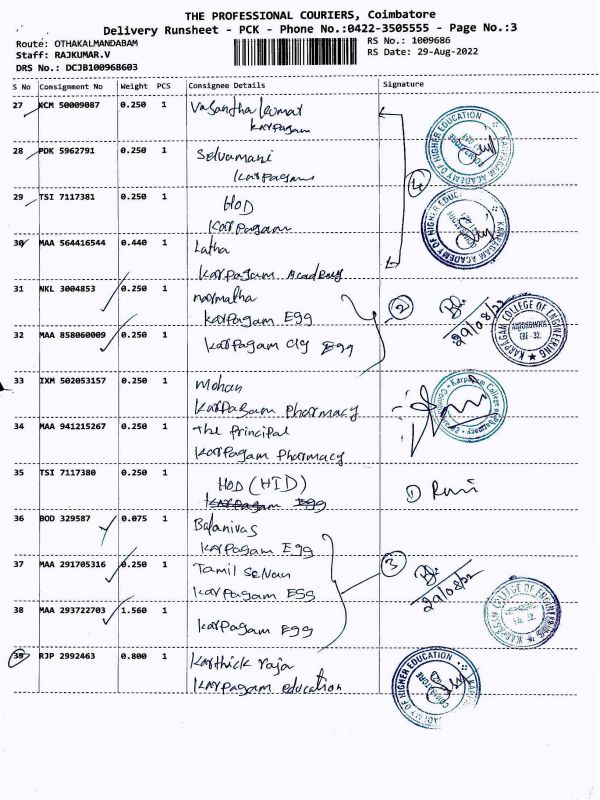 THE PROFESSIONAL COURIERS, Coimbatore
Delivery Runsheet - PCK - Phone No.:0422-3505555 - Page No.:3
Route: OTHAKALMANDABAM RS No.: 1009686
Staff: RAJKUMAR.V RS Date: 29-Aug-2022
DRS No.: DCJB100968603
S No Consignment No Weight PCS Consignee Details Signature
27 KCM 50009087 0.250 1 Vasantha Kumar
Karpagam
28 PDK 5962791 0.250 1 Selvamani
Karpagam
29 TSI 7117381 0.250 1 HOD
Karpagam
4
30 MAA 564416544 0.440 1 Latha
Karpagam Academy
31 NKL 3004853 0.250 1 normatha
Karpagam Egg
2
29/08/22
32 MAA 858060009 0.250 1 Karpagam Clg Egg
33 IXM 502053157 0.250 1 Mohan
Karpagam Pharmacy
34 MAA 941215267 0.250 1 The Principal
Karpagam Pharmacy
35 TSI 7117380 0.250 1 HOD (HID)
Karpagam Egg
1
36 BOD 329587 0.075 1 Balanivas
Karpagam Egg
37 MAA 291705316 0.250 1 Tamil Selvan
Karpagam Egg
3
29/08/22
38 MAA 293722703 1.560 1 Karpagam Egg
39 RJP 2992463 0.800 1 Karthick raja
Karpagam education
KARPAGAM ACADEMY OF HIGHER EDUCATION
COIMBATORE
KARPAGAM ACADEMY OF HIGHER EDUC
KARPAGAM COLLEGE OF ENGINEERING
AUTONOMOUS
CBE - 32.
Karpagam College of Pharmacy
OF HIGHER EDUCATION